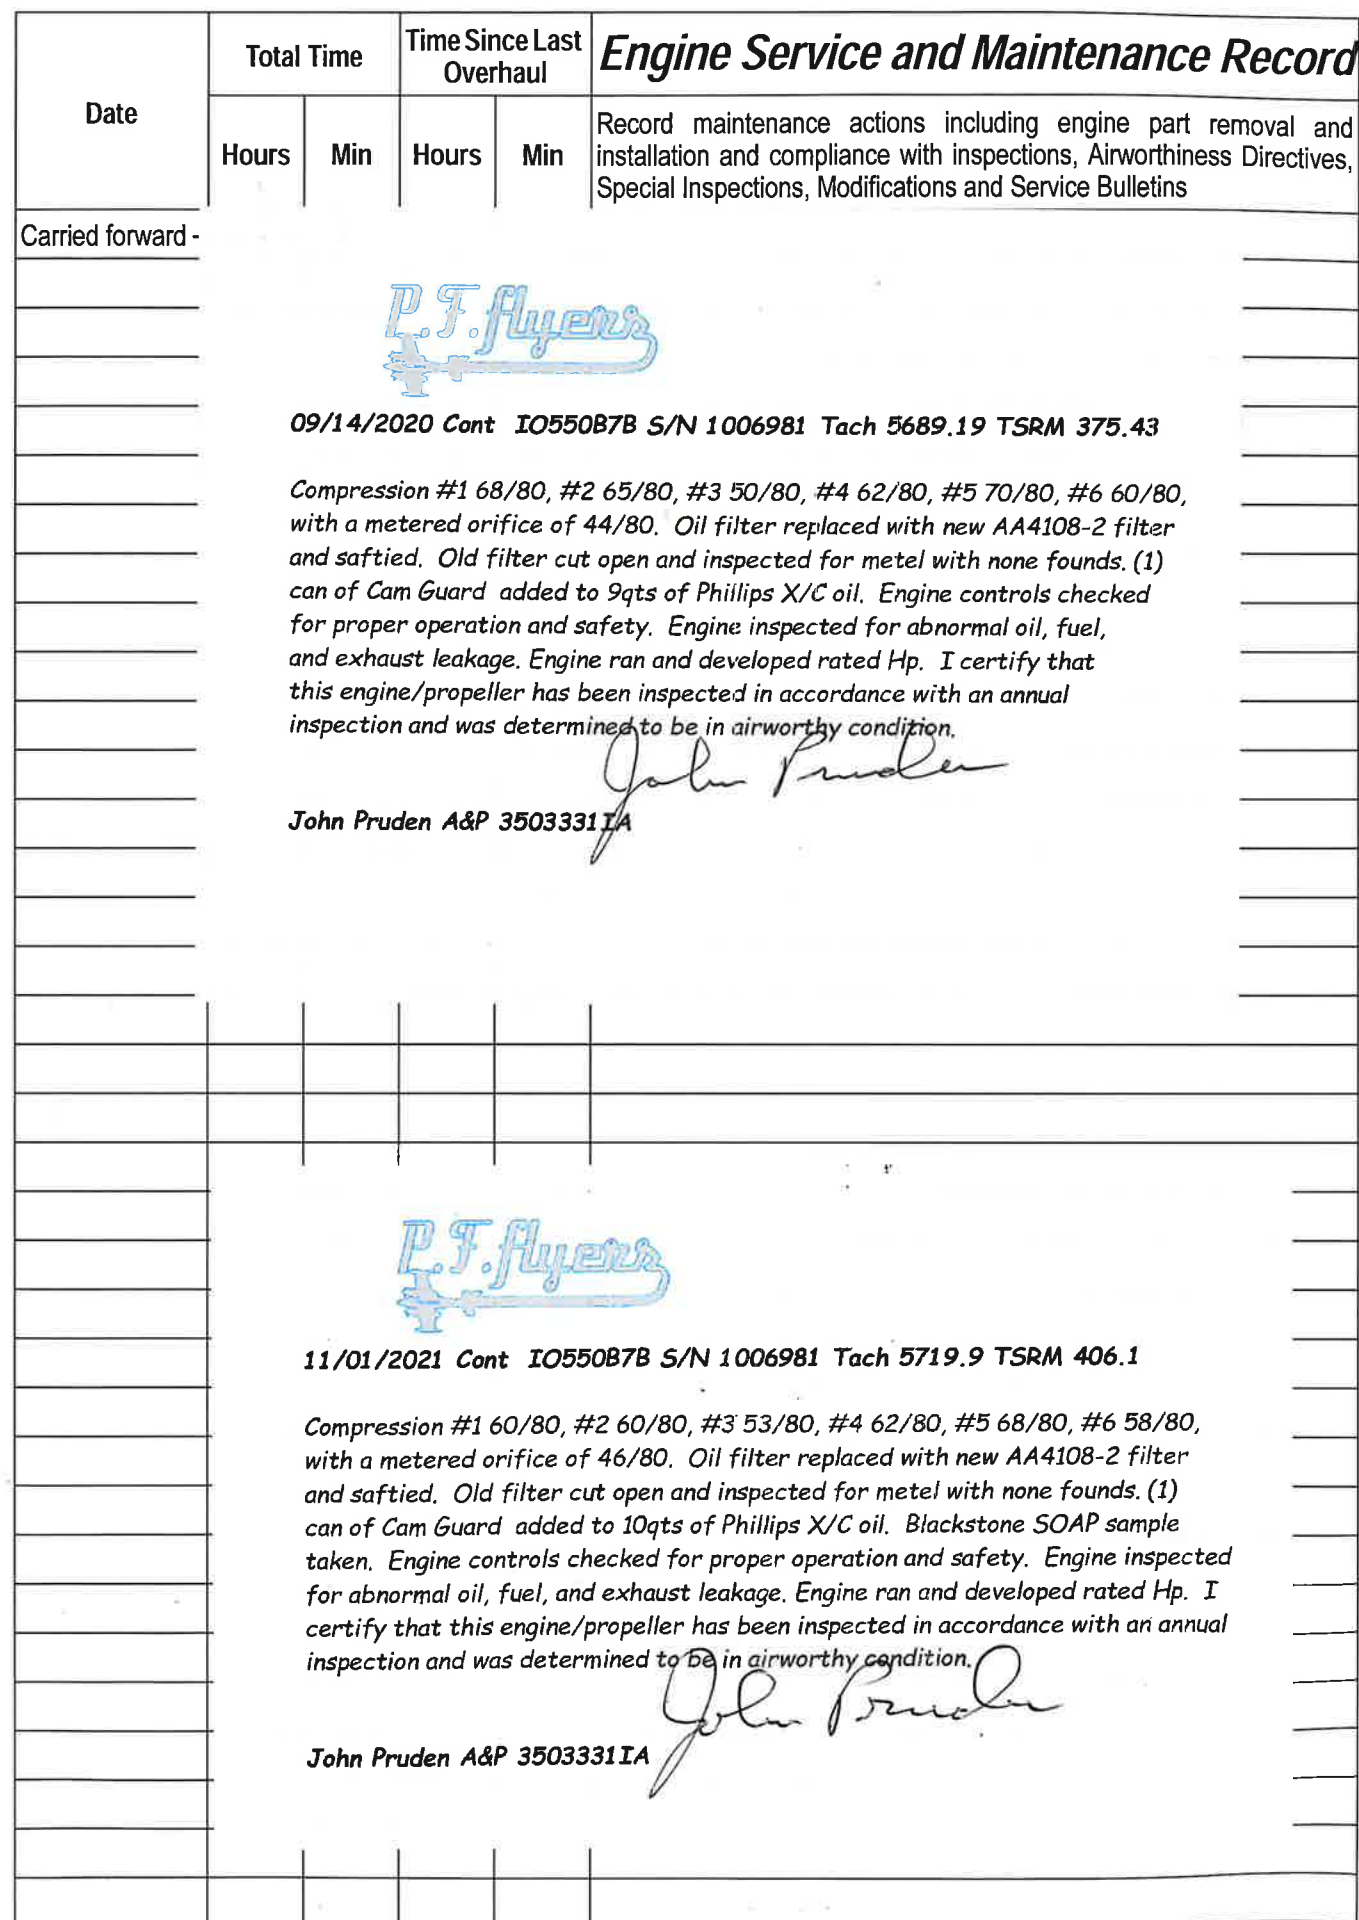 Date
Total Time
Time Since Last
Overhaul
Engine Service and Maintenance Record
Hours
Min
Hours
Min
Record maintenance actions including engine part removal and
installation and compliance with inspections, Airworthiness Directives,
Special Inspections, Modifications and Service Bulletins
Carried forward -
P.F. flyers
09/14/2020 Cont IO550B7B S/N 1006981 Tach 5689.19 TSRM 375.43
Compression #1 68/80, #2 65/80, #3 50/80, #4 62/80, #5 70/80, #6 60/80,
with a metered orifice of 44/80. Oil filter replaced with new AA4108-2 filter
and saftied. Old filter cut open and inspected for metel with none founds. (1)
can of Cam Guard added to 9qts of Phillips X/C oil. Engine controls checked
for proper operation and safety. Engine inspected for abnormal oil, fuel,
and exhaust leakage. Engine ran and developed rated Hp. I certify that
this engine/propeller has been inspected in accordance with an annual
inspection and was determined to be in airworthy condition.
John Pruden
John Pruden A&P 3503331IA
P.F. flyers
11/01/2021 Cont IO550B7B S/N 1006981 Tach 5719.9 TSRM 406.1
Compression #1 60/80, #2 60/80, #3 53/80, #4 62/80, #5 68/80, #6 58/80,
with a metered orifice of 46/80. Oil filter replaced with new AA4108-2 filter
and saftied. Old filter cut open and inspected for metel with none founds. (1)
can of Cam Guard added to 10qts of Phillips X/C oil. Blackstone SOAP sample
taken. Engine controls checked for proper operation and safety. Engine inspected
for abnormal oil, fuel, and exhaust leakage. Engine ran and developed rated Hp. I
certify that this engine/propeller has been inspected in accordance with an annual
inspection and was determined to be in airworthy condition.
John Pruden
John Pruden A&P 3503331IA